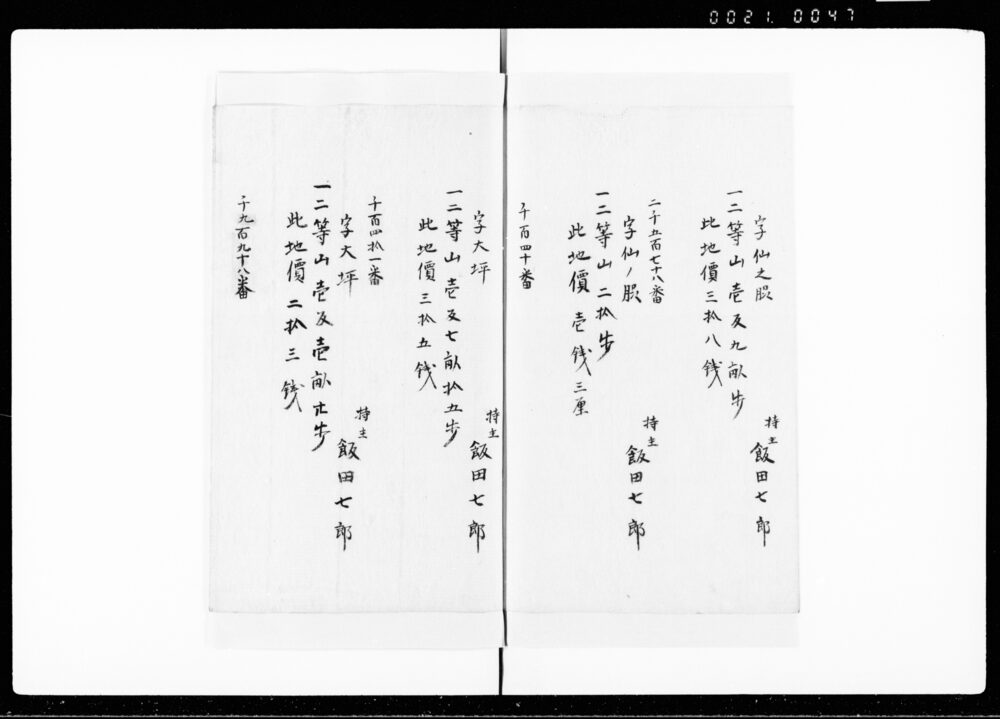 0021. 0047
字仙之腰
一二等山壱反九畝歩
持主 飯田七郎
此地價三拾八銭
二千五百七十八番
字仙ノ腰
持主 飯田七郎
一三等山二拾歩
此地價壱銭三厘
千百四十番
字大坪
持主 飯田七郎
一二等山壱反七畝拾五歩
此地價三拾五銭
千百四拾一番
字大坪
持主 飯田七郎
一二等山壱反壱畝廿歩
此地價二拾三銭
千九百九十八番